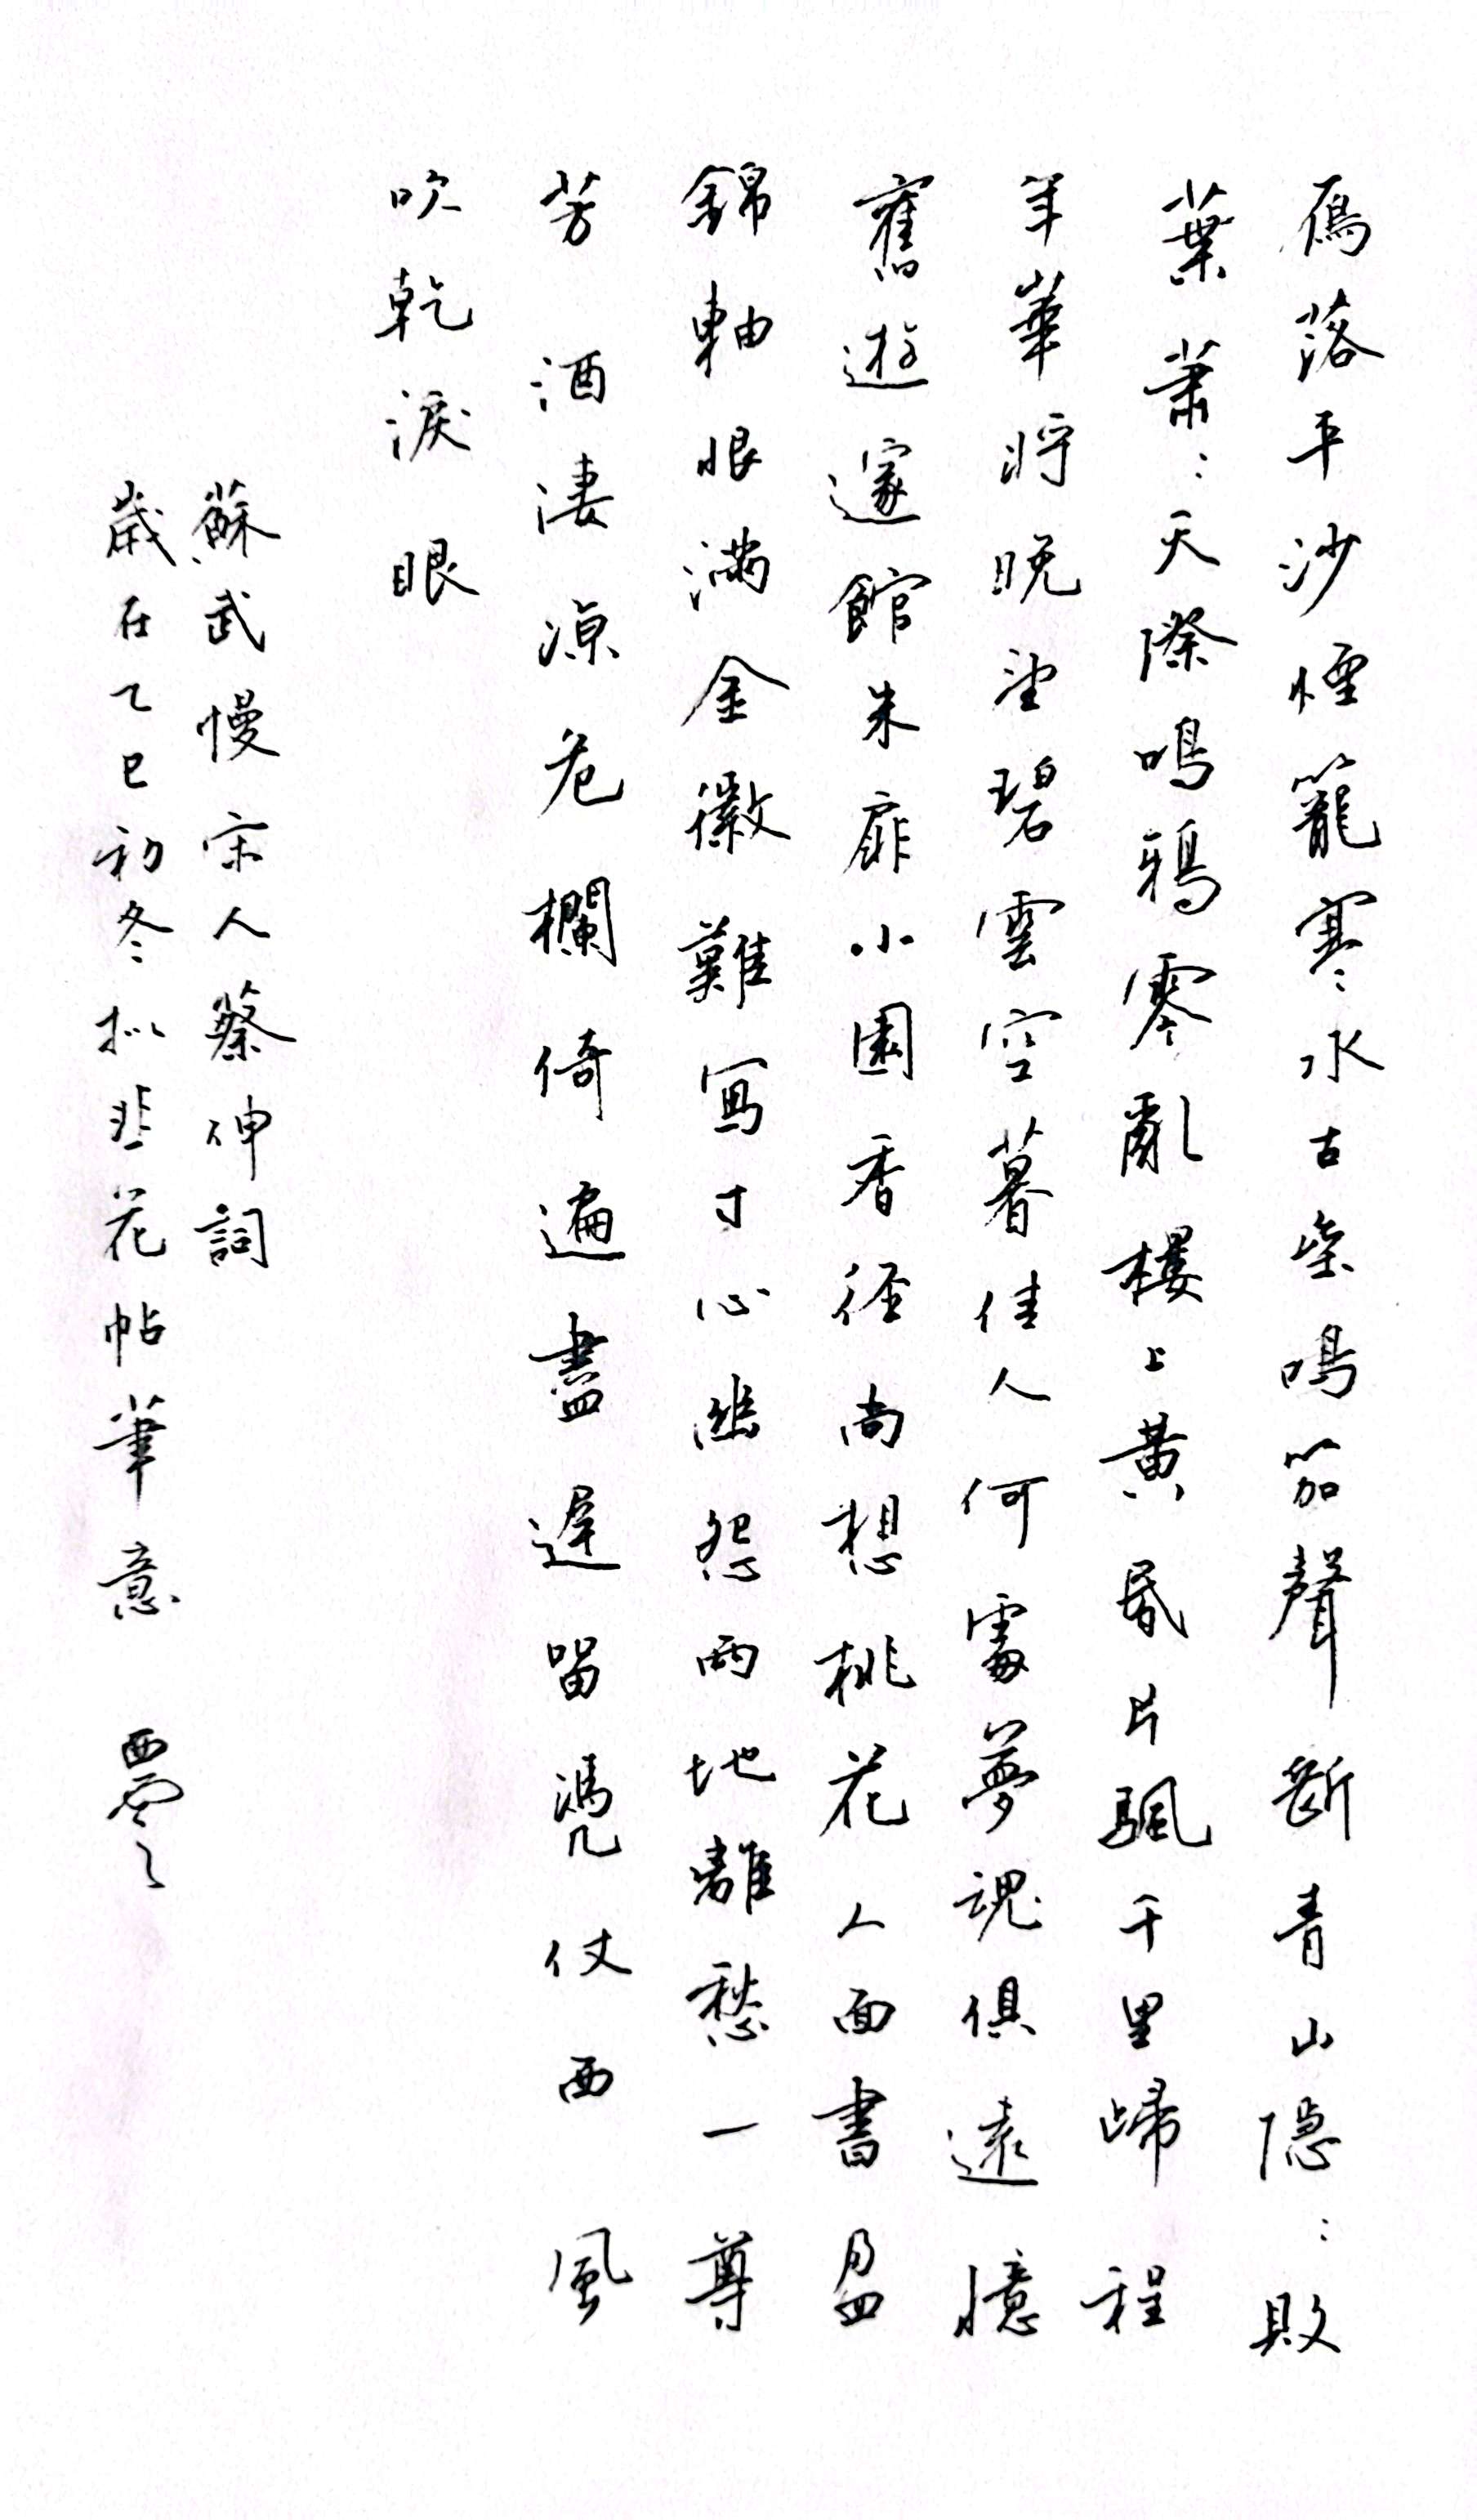 鴈落平沙煙籠寒水古垒鳴笳聲斷青山隐：敗
葉蕭：天際鳴鴉零亂樓上黄昏片颿千里歸程
年華將晚望碧雲空暮佳人何處夢魂俱遠憶
舊遊邃館朱扉小園香徑尚想桃花人面書盈
錦軸恨滿金徽難寫寸心幽怨兩地離愁一尊
芳酒淒凉危欄倚遍盡遲留憑仗西風
吹乾淚眼
蘇武慢宋人蔡伸詞
歲在乙巳初冬拟韭花帖筆意